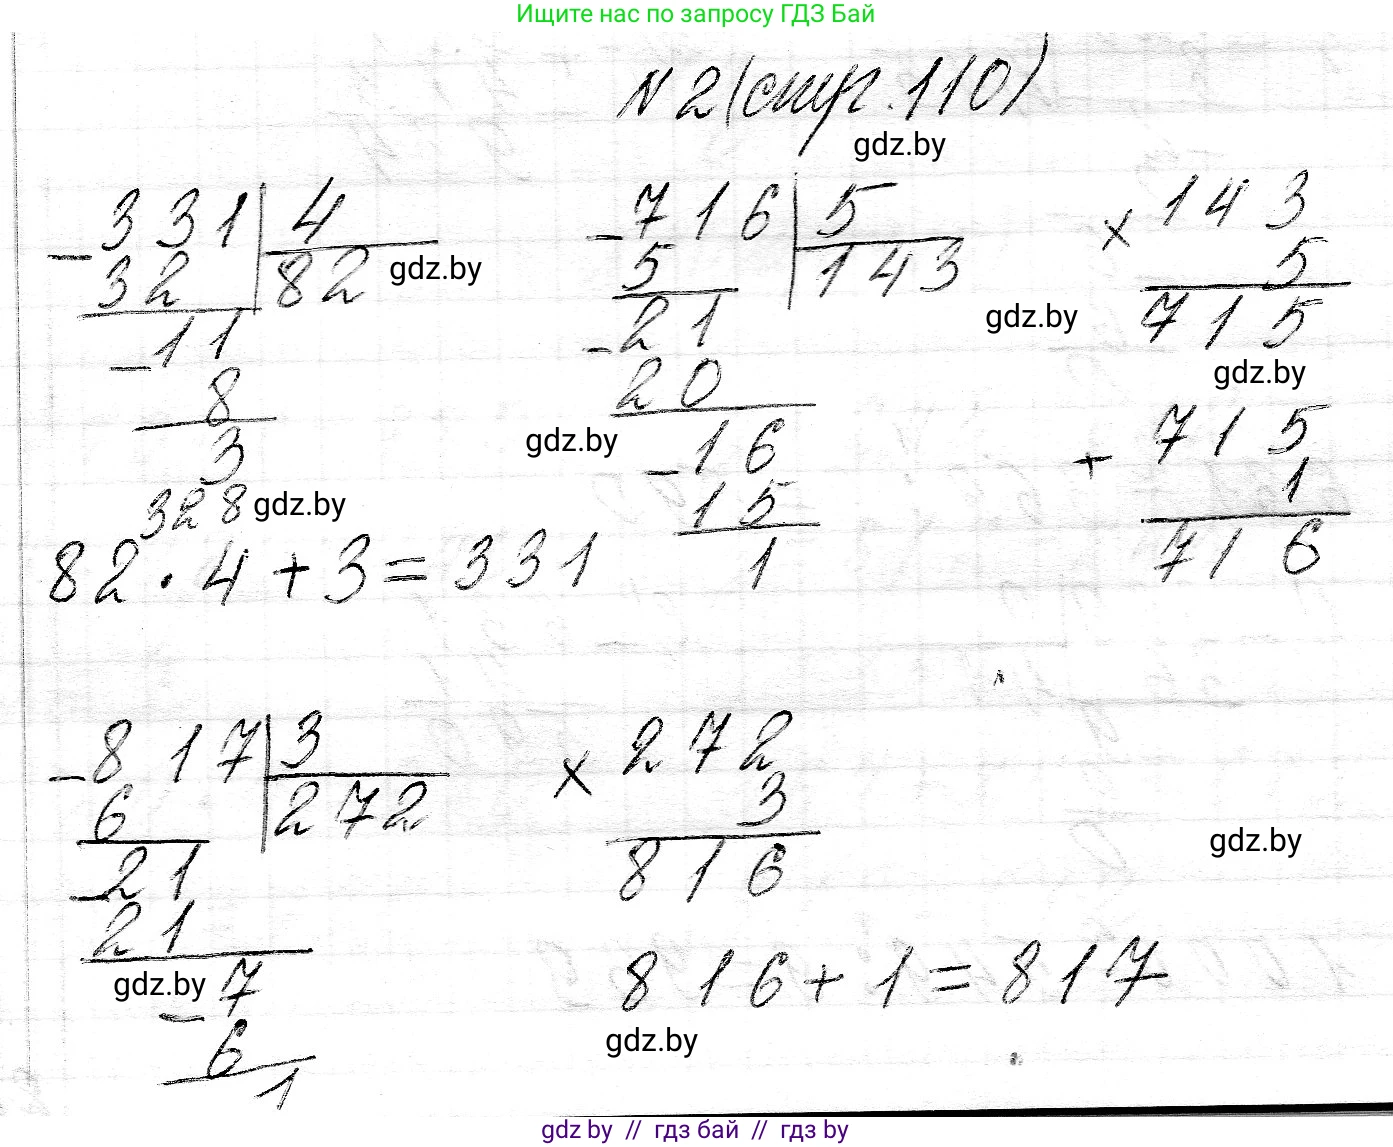 Ищите нас по запросу ГДЗ Бай
N 2 (стр. 110)
gdz.by
- 331 | 4
32 | 82
gdz.by
- 11
8
3
- 716 | 5
5 | 143
- 21
20
gdz.by
- 16
15
1
× 143
5
gdz.by
715
gdz.by
+ 715
1
716
328
gdz.by
82 · 4 + 3 = 331
- 817 | 3
6 | 272
- 21
21
gdz.by
- 7
6
1
× 272
3
816
gdz.by
816 + 1 = 817
gdz.by
gdz.by // гдз бай // gdz by